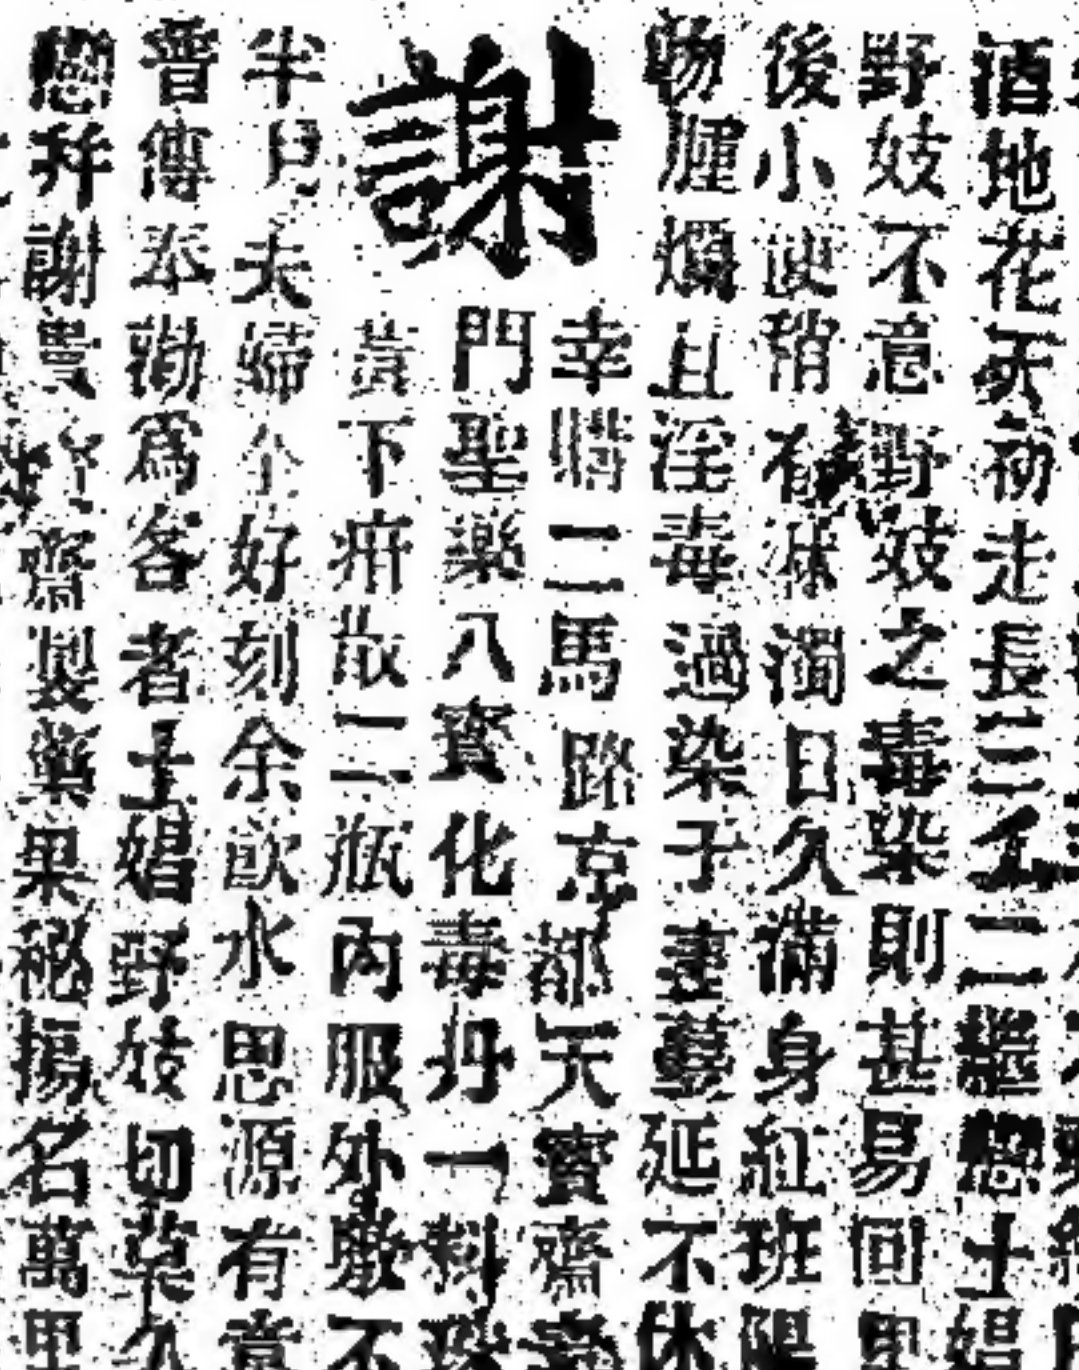 酒地花天初走長三么二繼戀土娼
野妓不意野妓之毒染則甚易回里
後小便稍有淋濁日久滿身紅班陽
物腫爛且淫毒過染子妻蔓延不休
謝
幸購二馬路京都天寶齋
門聖藥八寶化毒丹一料
下疳散二瓶內服外敷不
半月夫婦全好刻余飲水思源有意
普傳奉勸為各者土娼野妓切莫久
戀并謝貴齋製藥果秘揚名萬里